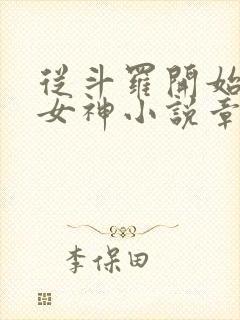 從斗羅開始
女神小說章
李保田